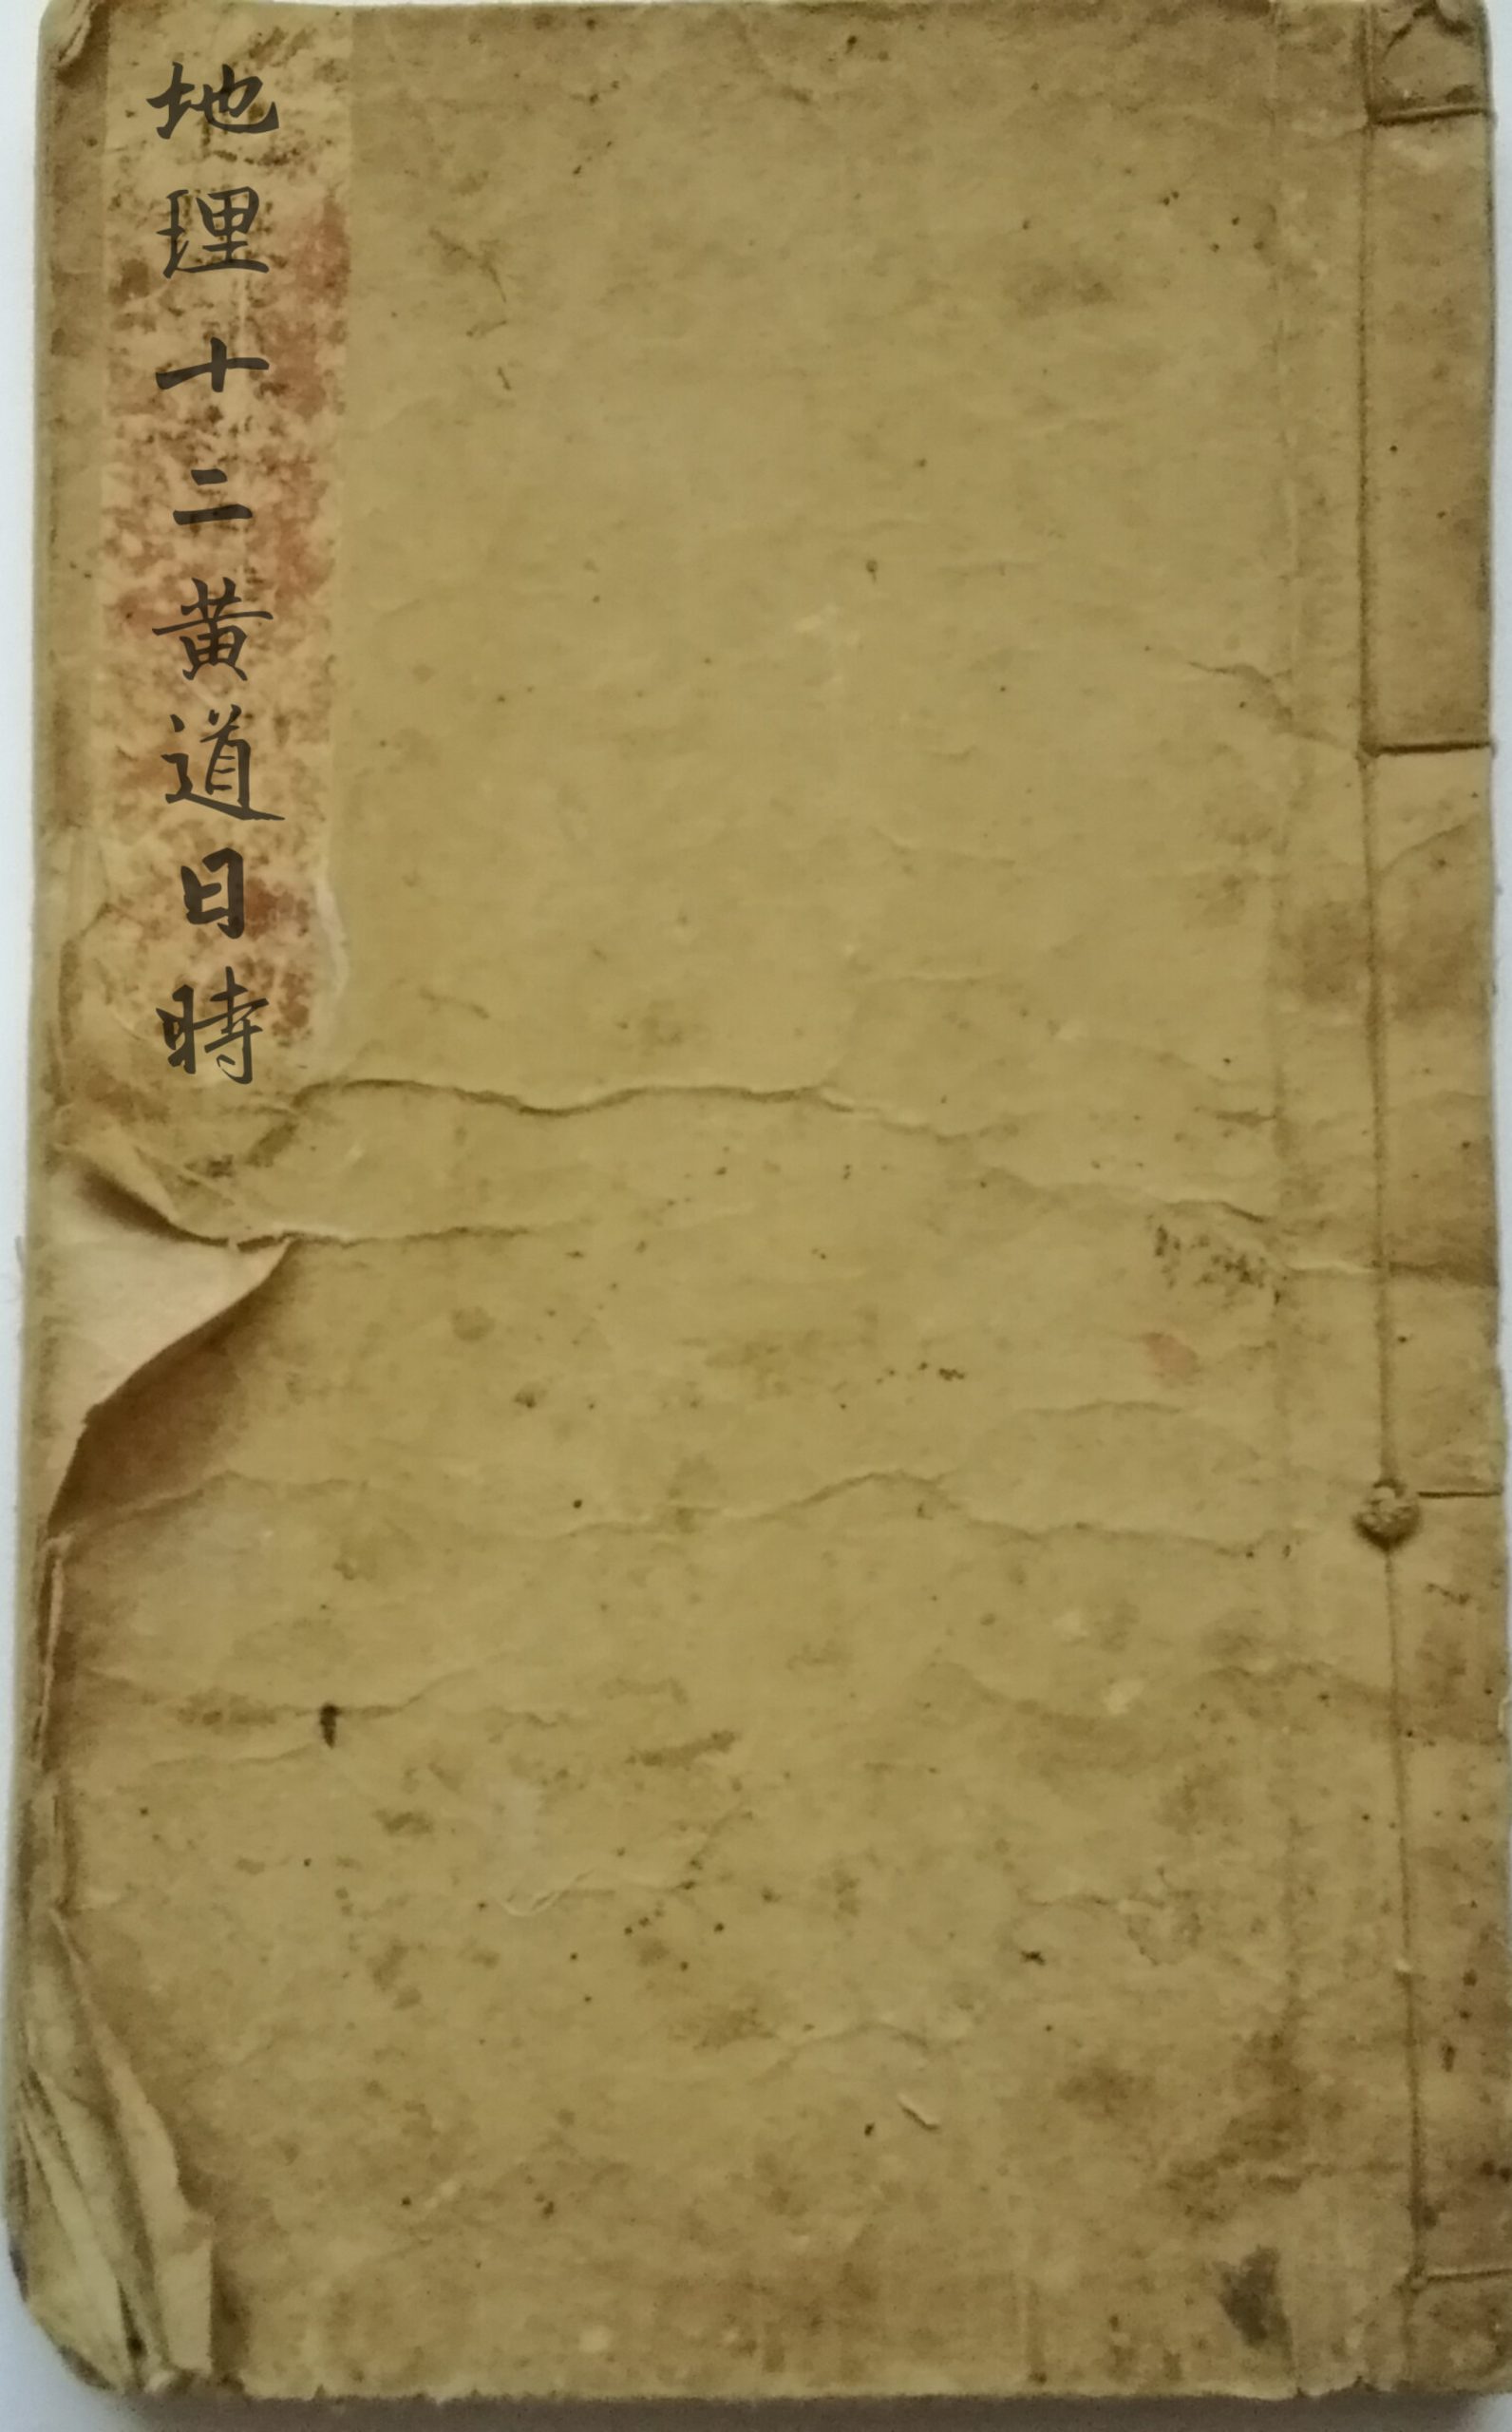 地理十二黄道日時